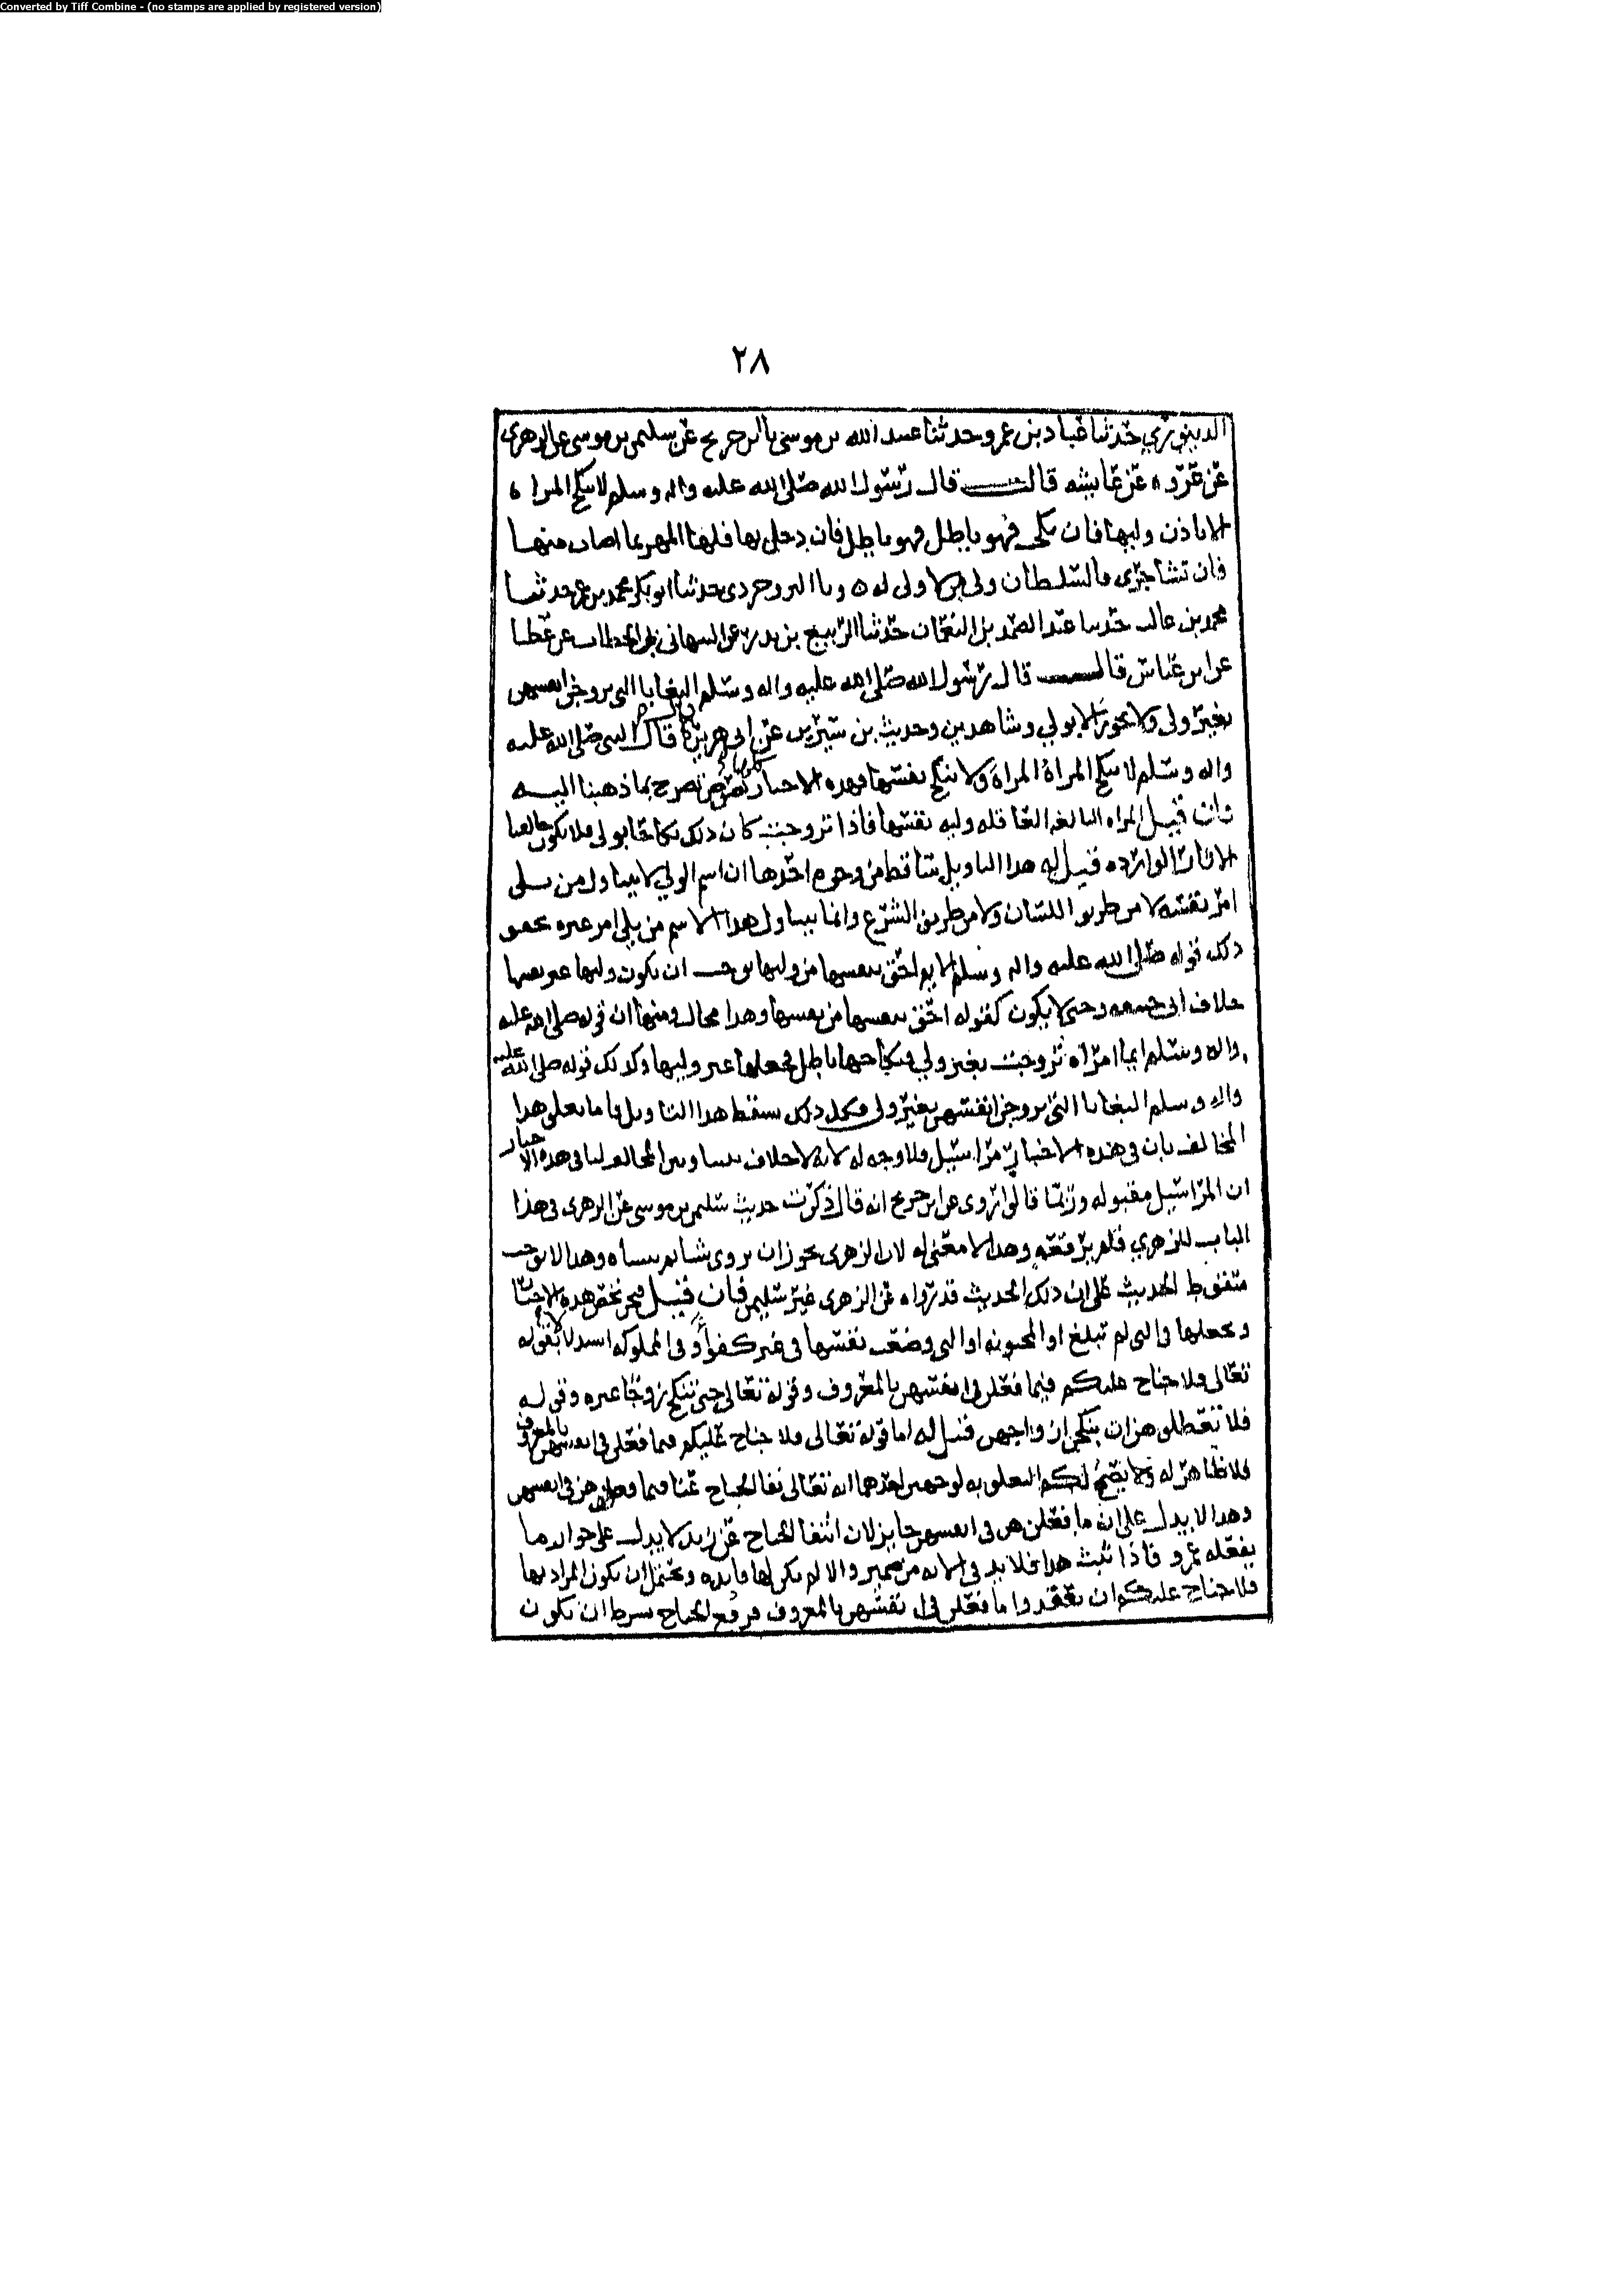 Converted by Tiff Combine - (no stamps are applied by registered version)
٢٨
الدينوري حدثنا عباد بن عمرو حدثنا عبيد الله بن موسى بن جريح عن سليمن بن موسى عن الزهري
عن عروه عن عايشه قالت قال رسول الله صلى الله عليه واله وسلم لا تنكح المراه
الا باذن وليها فان نكحت فهو باطل فهو باطل فان دخل بها فلها المهر بما اصاب منها
فان تشاجرى فالسلطان ولي من لا ولى له ونا البروجردى حدثنا ابو بكر محمد بن عمر حدثنا
محمد بن غالب حدثنا عبد الصمد بن النعمان حدثنا الربيع بن بدر عن النهاس عن عطا
عن ابن عباس قال قال رسول الله صلى الله عليه واله وسلم البغايا التي يزوجن انفسهن
بغير ولى ولا يجوز الا بولي وشاهدين وحديث بن سيرين عن ابى هريرة قال قال النبى صلى الله عليه
واله وسلم لا تنكح المراة المراة ولا تنكح نفسها فهذه الاخبار كلها تصرح بما ذهبنا اليه
فان قيل المراه البالغه العاقله وليه نفسها فاذا تزوجت كان ذلك نكاحا بولى فلا يكون مخالفا
الاثار الوارده قيل له هذا التاويل ساقط من وجوه احدها ان اسم الولي لا يتناول من يلى
امر نفسه لا من طريق اللسان ولا من طريق الشرع وانما يتناول هذا الاسم من يلي امر غيره يحقق
ذلك قوله صلى الله عليه واله وسلم الايم احق بنفسها من وليها يوجب ان يكون وليها غير نفسها
خلاف ابى حنيفه وحتى لا يكون كقوله احق بنفسها من نفسها وهذا محال ومنها ان قوله صلى الله عليه
واله وسلم ايما امراه تزوجت بغير ولي فنكاحها باطل فجعلها غير وليها وكذلك قوله صلى الله عليه
واله وسلم البغايا التي يزوجن انفسهن بغير ولى فكل ذلك يسقط هذا التاويل فاما تعلق هذا
المخالف بان في هذه الاخبار مراسيل فلا وجه له لانه لا خلاف بيننا وبين المخالف لنا فى هذه الاخبار
ان المراسيل مقبوله وربما قالوا روى عن ابن جريح انه قال ذكرت حديث سليمن بن موسى عن الزهرى فى هذا
الباب للزهري فلم يرفعه وهذا لا معنى له لان الزهرى يجوز ان يروى شيا ثم ينساه وهذا لا يوجب
سقوط الحديث على ان ذلك الحديث قد رواه عن الزهرى غير سليمن فان قيل فنحن نخص هذه الاخبار
ونجعلها في التى لم تبلغ او المجنونه او التى وضعت نفسها في غير كفو او فى المملوكه استدلالا بقوله
تعالى فلا جناح عليكم فيما فعلن فى انفسهن بالمعروف وقوله تعالى حتى تنكح زوجا غيره وقوله
فلا تعضلوهن ان ينكحن ازواجهن قيل له اما قوله تعالى فلا جناح عليكم فيما فعلن فى انفسهن بالمعروف
فلا ظاهر له ولا يصح لكم التعلق به لوجهين احدهما انه تعالى نفا الجناح عنا فيما فعلن هن في انفسهن
وهذا لا يدل على ان ما فعلن هن فى انفسهن جايز لان انتفا الجناح عن زيد لا يدل على جواز ما
يفعله عمرو فاذا ثبت هذا فلا بد فى الايه من ضمير والا لم يكن لها فايده ويحتمل ان يكون المراد بها
فلا جناح عليكم ان تعقدوا ما فعلن فى انفسهن بالمعروف فرفع الجناح بشرط ان يكون